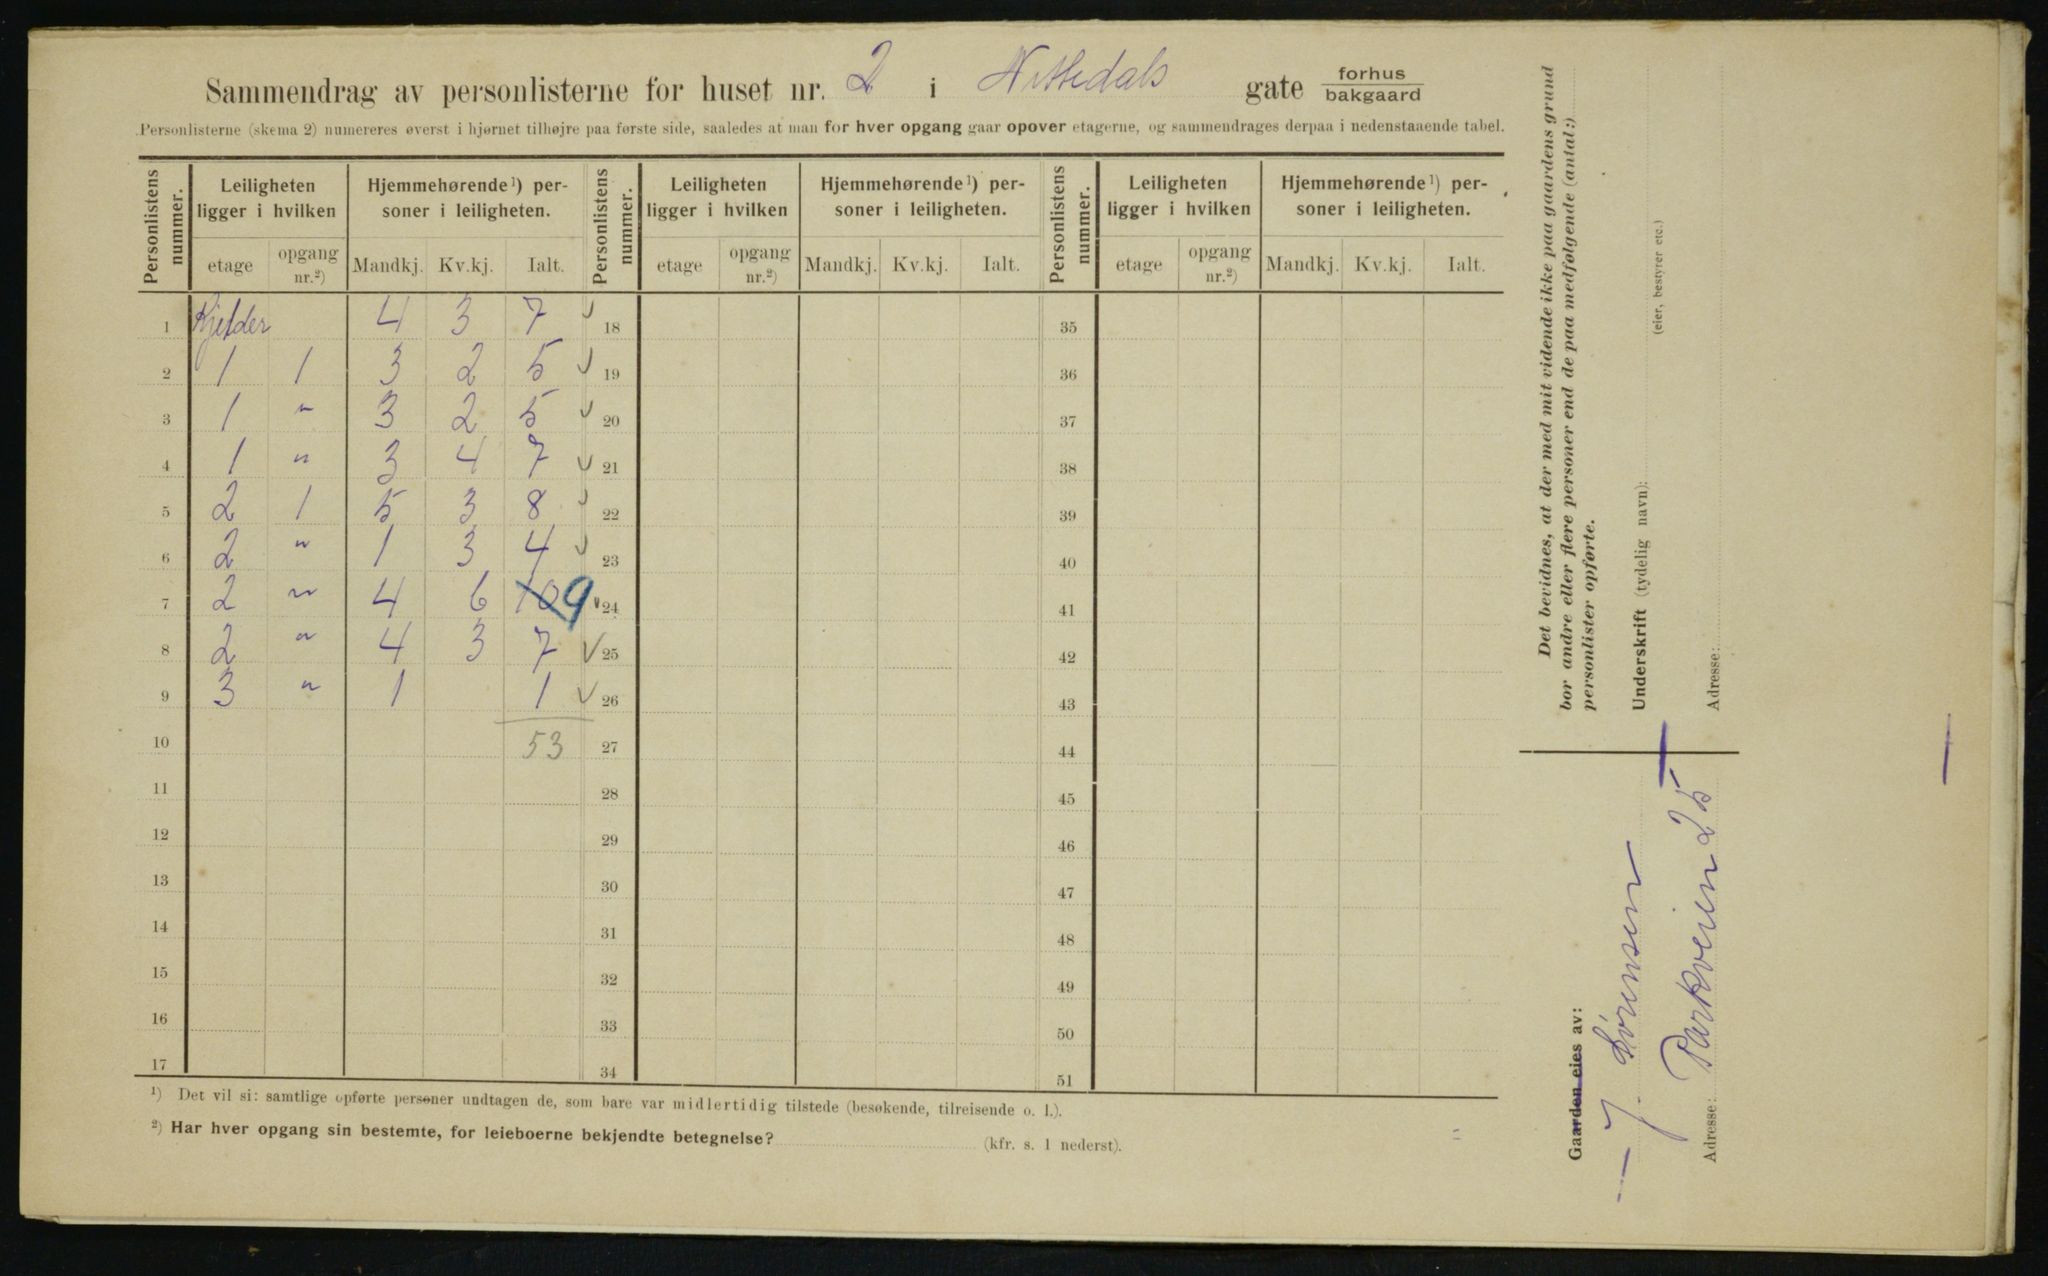 Sammendrag av personlisterne for huset nr. 2 i Nittedals gate forhus bakgaard
Personlisterne (skema 2) numereres øverst i hjørnet tilhøjre paa første side, saaledes at man for hver opgang gaar opover etagerne, og sammendrages derpaa i nedenstaaende tabel.
Personlistens nummer. Leiligheten ligger i hvilken Hjemmehørende ¹) personer i leiligheten. Personlistens nummer. Leiligheten ligger i hvilken Hjemmehørende ¹) personer i leiligheten. Personlistens nummer. Leiligheten ligger i hvilken Hjemmehørende ¹) personer i leiligheten.
etage opgang nr.²) Mandkj. Kv.kj. Ialt. etage opgang nr.²) Mandkj. Kv.kj. Ialt. etage opgang nr.²) Mandkj. Kv.kj. Ialt.
1 Kjelder 4 3 7 ✓ 18 35
2 1 1 3 2 5 ✓ 19 36
3 1 " 3 2 5 ✓ 20 37
4 1 " 3 4 7 ✓ 21 38
5 2 1 5 3 8 ✓ 22 39
6 2 " 1 3 4 ✓ 23 40
7 2 " 4 6 10 9 ✓ 24 41
8 2 " 4 3 7 ✓ 25 42
9 3 " 1 1 ✓ 26 43
10 53 27 44
11 28 45
12 29 46
13 30 47
14 31 48
15 32 49
16 33 50
17 34 51
¹) Det vil si: samtlige opførte personer undtagen de, som bare var midlertidig tilstede (besøkende, tilreisende o. l.).
²) Har hver opgang sin bestemte, for leieboerne bekjendte betegnelse? (kfr. s. 1 nederst).
Det bevidnes, at der med mit vidende ikke paa gaardens grund
bor andre eller flere personer end de paa medfølgende (antal:)
personlister opførte.
Underskrift (tydelig navn):
(eier, bestyrer etc.)
Adresse:
Gaarden eies av:
J. Sørensen
Adresse: Parkveien 25